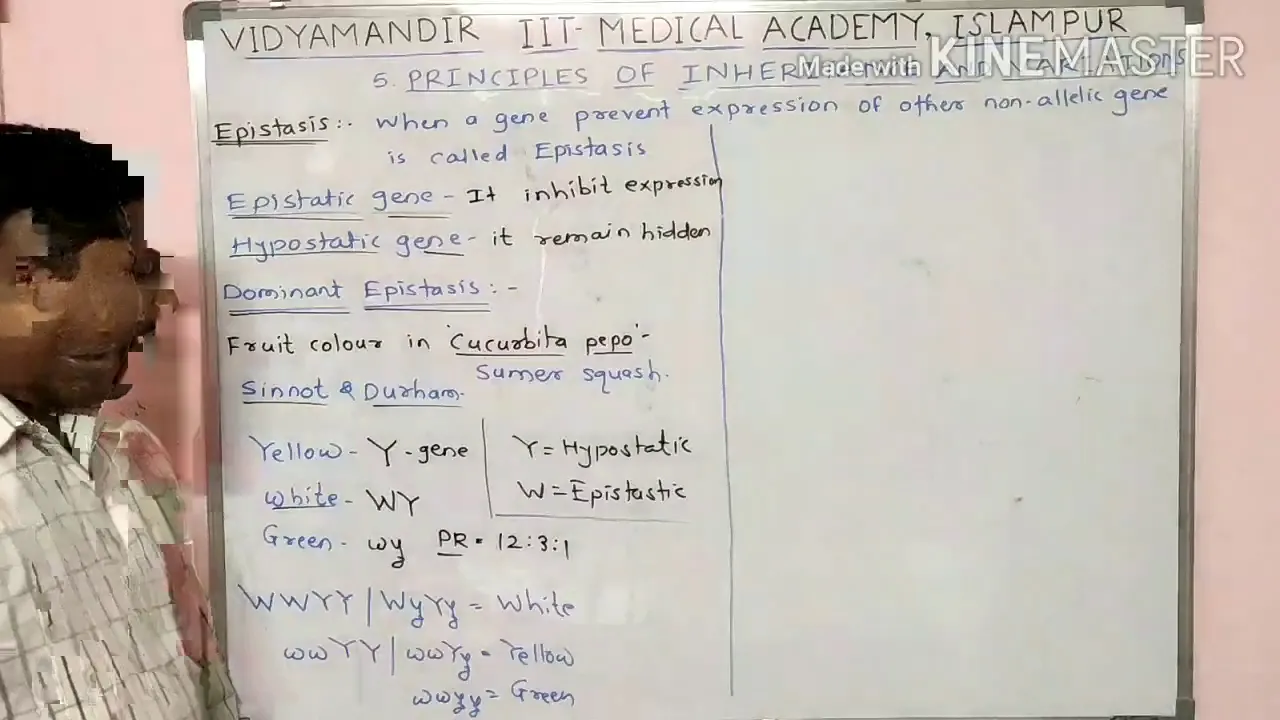 VIDYAMANDIR IIT- MEDICAL ACADEMY, ISLAMPUR
Made with KINEMASTER
5. PRINCIPLES OF INHERITANCE AND VARIATIONS
Epistasis:- When a gene prevent expression of other non-allelic gene
is called Epistasis
Epistatic gene - It inhibit expression
Hypostatic gene - it remain hidden
Dominant Epistasis: -
Fruit colour in 'Cucurbita pepo'-
Sumer squash.
Sinnot & Durham.
Yellow - Y - gene
White - WY
Green - wy PR = 12:3:1
Y = Hypostatic
W = Epistastic
WWYY | WyYy = White
wwYY | wwYy = Yellow
wwyy = Green